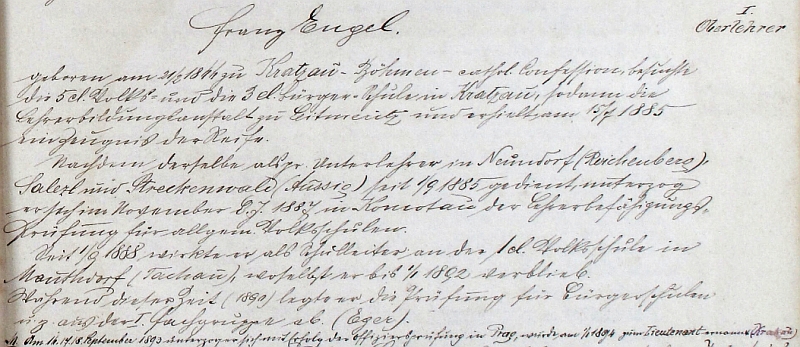 Franz Engel.
I.
Oberlehrer
geboren am 21/6 18 zu Kratzau - Böhmen - cathol. Confession, besuchte
die 5 cl. Volks- und die 3 cl. Bürger-Schule in Kratzau, sodann die
Lehrerbildungsanstalt zu Leitmeritz und erhielt am 15/7 1885
ein Zeugnis der Reife.
Nachdem derselbe als pr. Unterlehrer in Neundorf (Reichenberg),
Salezl und Streckenwald (Aussig) seit 1/9 1885 gedient, unterzog
er sich im November d. J. 1887 in Komotau der Lehrerbefähigungs-
Prüfung für allgem. Volksschulen.
Seit 1/9 1888 wirkte er als Schulleiter an der 1 cl. Volksschule in
Mauthdorf (Tachau), woselbst er bis 1892 verblieb.
Während dieser Zeit (1890) legte er die Prüfung für Bürgerschulen
u. z. aus der I. Fachgruppe ab. (Eger).
Am 16. 17. 18. September 1893 unterzog er sich mit Erfolg der Offiziersprüfung in Prag, wurde am 1/1 1894 zum Lieutenant ernannt